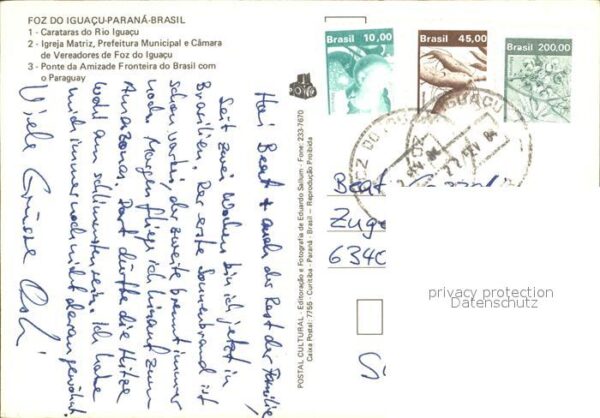 FOZ DO IGUAÇU-PARANÁ-BRASIL
1 - Carataras do Rio Iguaçu
2 - Igreja Matriz, Prefeitura Municipal e Câmara
de Vereadores de Foz do Iguaçu
3 - Ponte da Amizade Fronteira do Brasil com
o Paraguay
Hai Beat + auch der Rest der Familie,
Seit zwei Wochen bin ich jetzt in
Brasilien. Der erste Sonnenbrand ist
schon vorbei, der zweite brennt immer
noch. Morgen fliege ich hinauf zum
Amazonas. Dort dürfte die Hitze
wohl am schlimmsten sein. Ich habe
mich immer noch nicht daran gewöhnt.
Viele Grüsse
POSTAL CULTURAL - Editoração e Fotografia de Eduardo Sallum - Fone: 233-7670
Caixa Postal: 7756 - Curitiba - Paraná - Brasil — Reprodução Proibida
Brasil 10,00
Brasil 45,00
Brasil 200,00
FOZ DO IGUAÇU
Beat
Zug
6340
privacy protection
Datenschutz